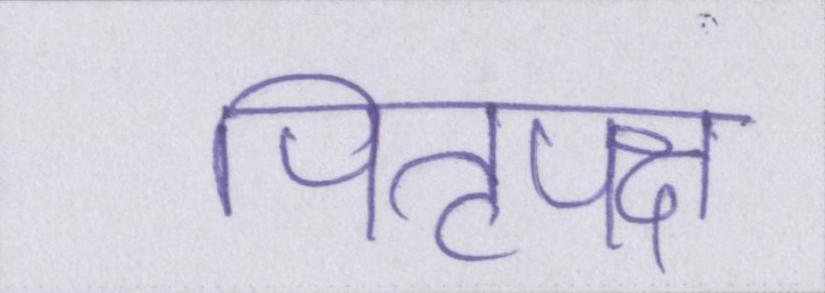 पितृपक्ष